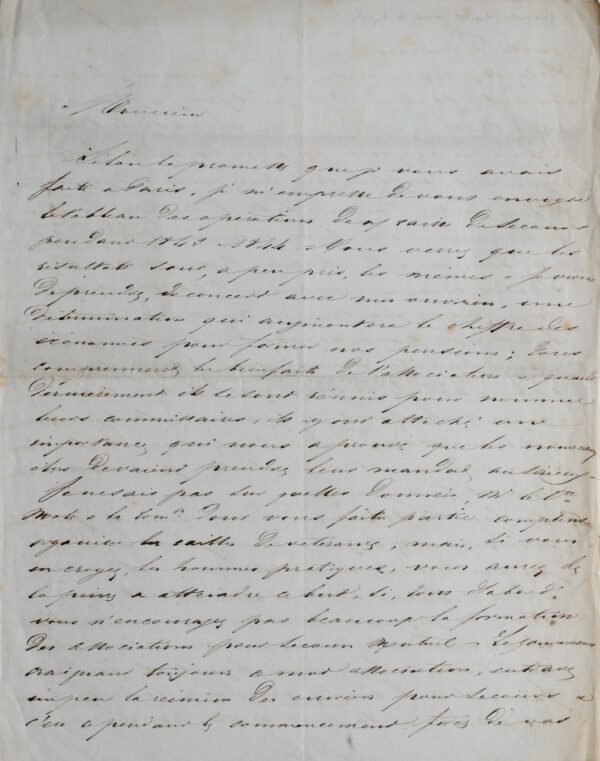 Monsieur
Selon la promesse que je vous avais
faite à Paris, je m'empresse de vous envoyer
le tableau des opérations de caisse de secours
pendant 1843 1844 Vous verrez que les
résultats sont, à peu près, les mêmes Je viens
de prendre, de concert avec mes ouvriers, une
détermination qui augmentera le chiffre des
économies pour former nos pensions; tous
comprennent les bienfaits de l'association quand
dernièrement ils se sont réunis pour nommer
leurs commissaires, ils y ont attaché une
importance qui nous a prouvé que les nouveaux
élus devaient prendre leur mandat au sérieux
Je ne sais pas sur quelles données Mr le
Molé & la dont vous faites partie comptent
organiser les caisses de vétérans; mais, si vous
en croyez les hommes pratiques, vous aurez de
la peine à atteindre ce but, si, tout d'abord,
vous n'encouragez pas beaucoup la formation
des associations pour secours mutuel Le gouvernement
craignant toujours ce mot association, entrave
un peu la réunion des ouvriers pour secours &
c'en a pendant le commencement de vos